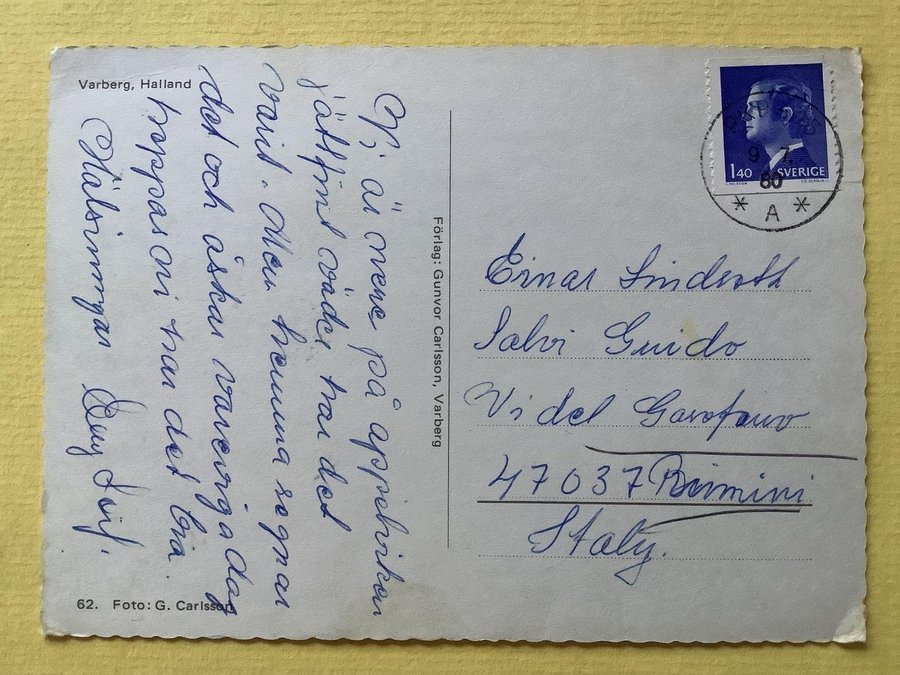 Varberg, Halland
Vi är nere på appelviken
jättfint väder har det
varit. Men hemma regnar
det och åskar varenga dag
hoppas ni har det bra.
Hälsningar Leif.
62. Foto: G. Carlsson
Förlag: Gunvor Carlsson, Varberg
140 SVERIGE
9 7
80
* A *
Einar Linderoth
Salvi Guido
Vi del Garofano
47037 Rimini
Italy.